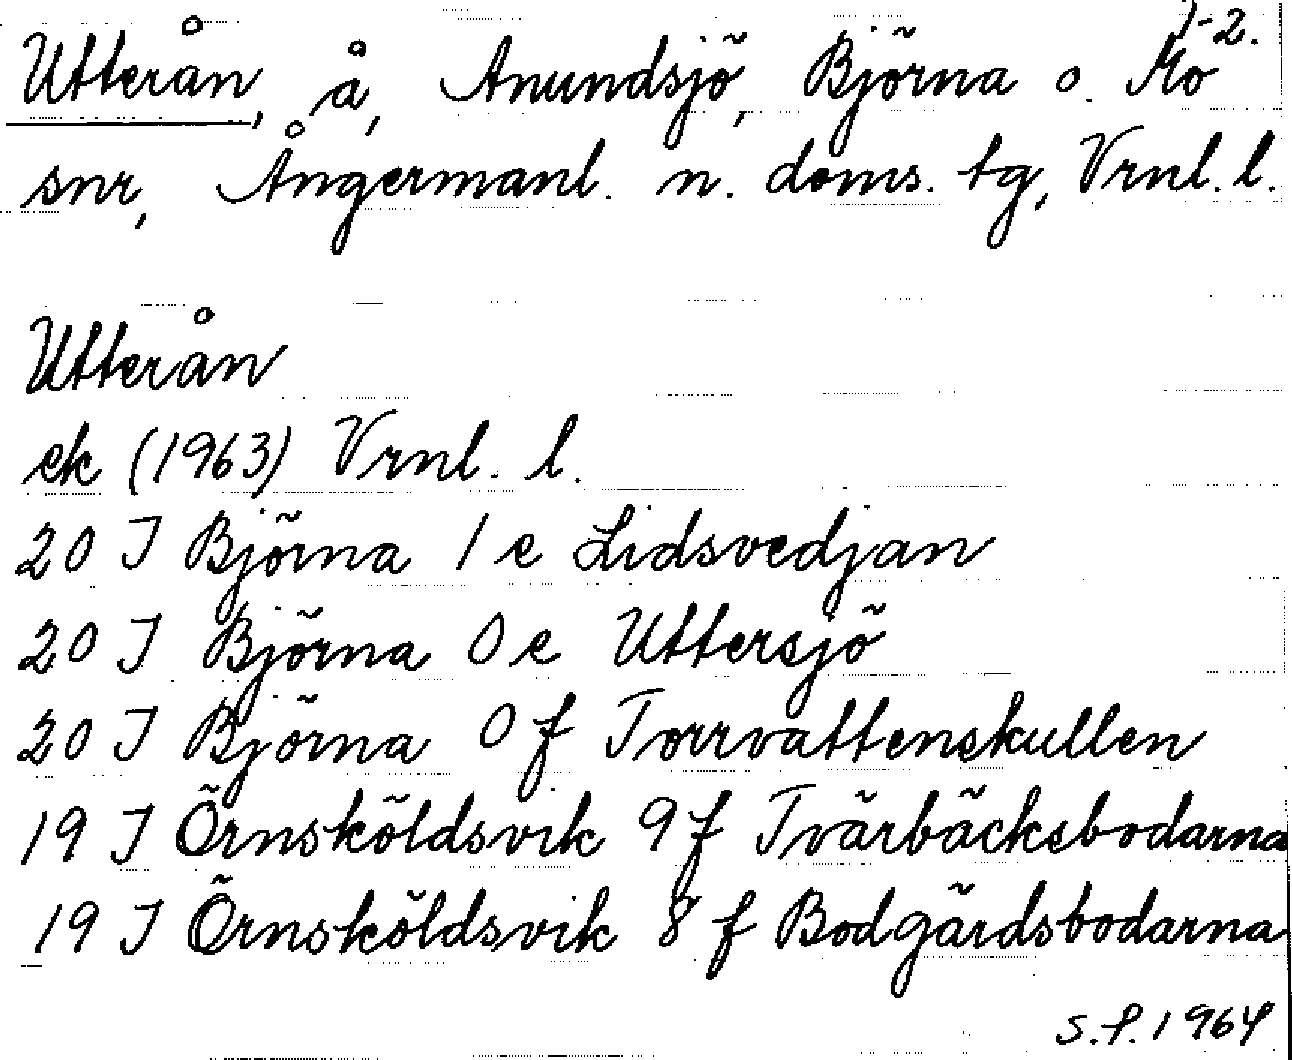 1-2.
Utterån, å, Anundsjö, Björna o. Mo
snr, Ångermanl. n. doms. tg, Vrnl. l.
Utterån
ek (1963) Vrnl. l.
20 J Björna 1 e Lidsvedjan
20 J Björna 0 e Uttersjö
20 J Björna 0 f Torrvattenskullen
19 J Örnsköldsvik 9 f Tvärbäcksbodarna
19 J Örnsköldsvik 8 f Bodgärdsbodarna
s.f. 1964